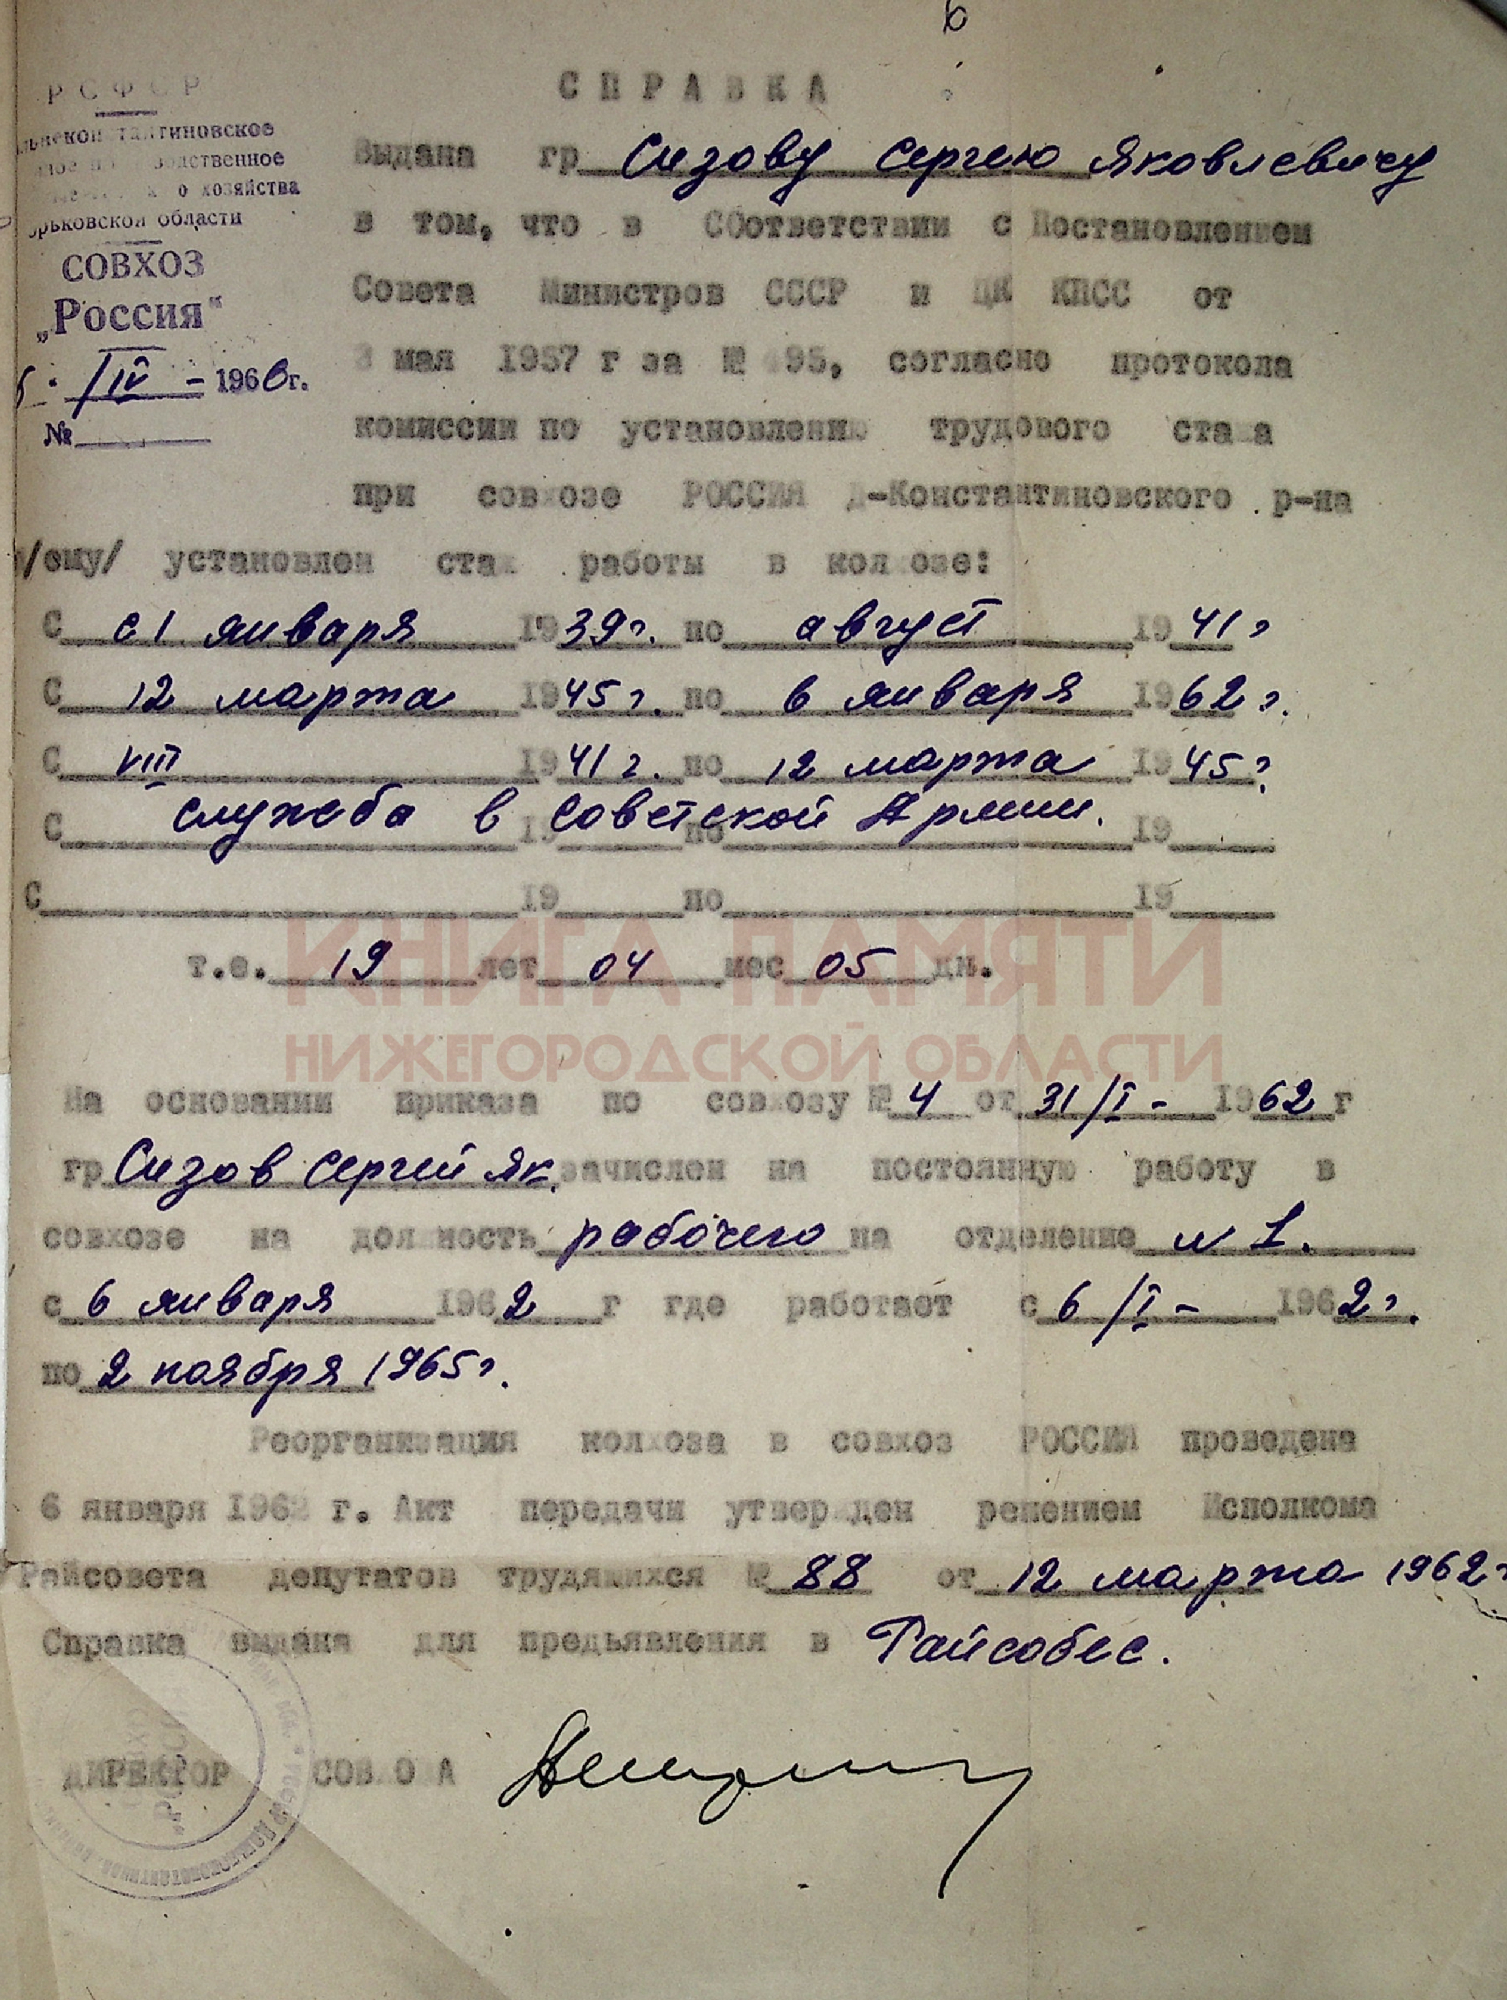 6
Р С Ф С Р
СОВХОЗ
„Россия“
IV - 1966г.
№
области
хозяйства
С П Р А В К А
Выдана гр Сизову Сергею Яковлевичу
в том, что в СООтветствии с Постановлением
Совета Министров СССР и ЦК КПСС от
мая 1957 г за № 495, согласно протокола
комиссии по установлению трудового стажа
при совхозе РОССИЯ Д-Константиновского р-на
/ему/ установлен стаж работы в колхозе:
С с 1 января 1939г. по август 1941г
С 12 марта 1945г. по 6 января 1962г.
С VIII 1941г. по 12 марта 1945г
служба в Советской Армии.
С 19 по 19
С 19 по 19
т.е. 19 лет 04 мес 05 дн.
КНИГА ПАМЯТИ
НИЖЕГОРОДСКОЙ ОБЛАСТИ
На основании приказа по совхозу № 4 от 31/I - 1962 г
гр Сизов Сергей Як. зачислен на постоянную работу в
совхозе на должность рабочего на отделение № 1.
с 6 января 1962 г где работает с 6/I - 1962г.
по 2 ноября 1965г.
Реорганизация колхоза в совхоз РОССИЯ проведена
6 января 1962 г. Акт передачи утвержден решением Исполкома
Райсовета депутатов трудящихся № 88 от 12 марта 1962г
Справка выдана для предъявления в Райсобес.
ДИРЕКТОР СОВХОЗА